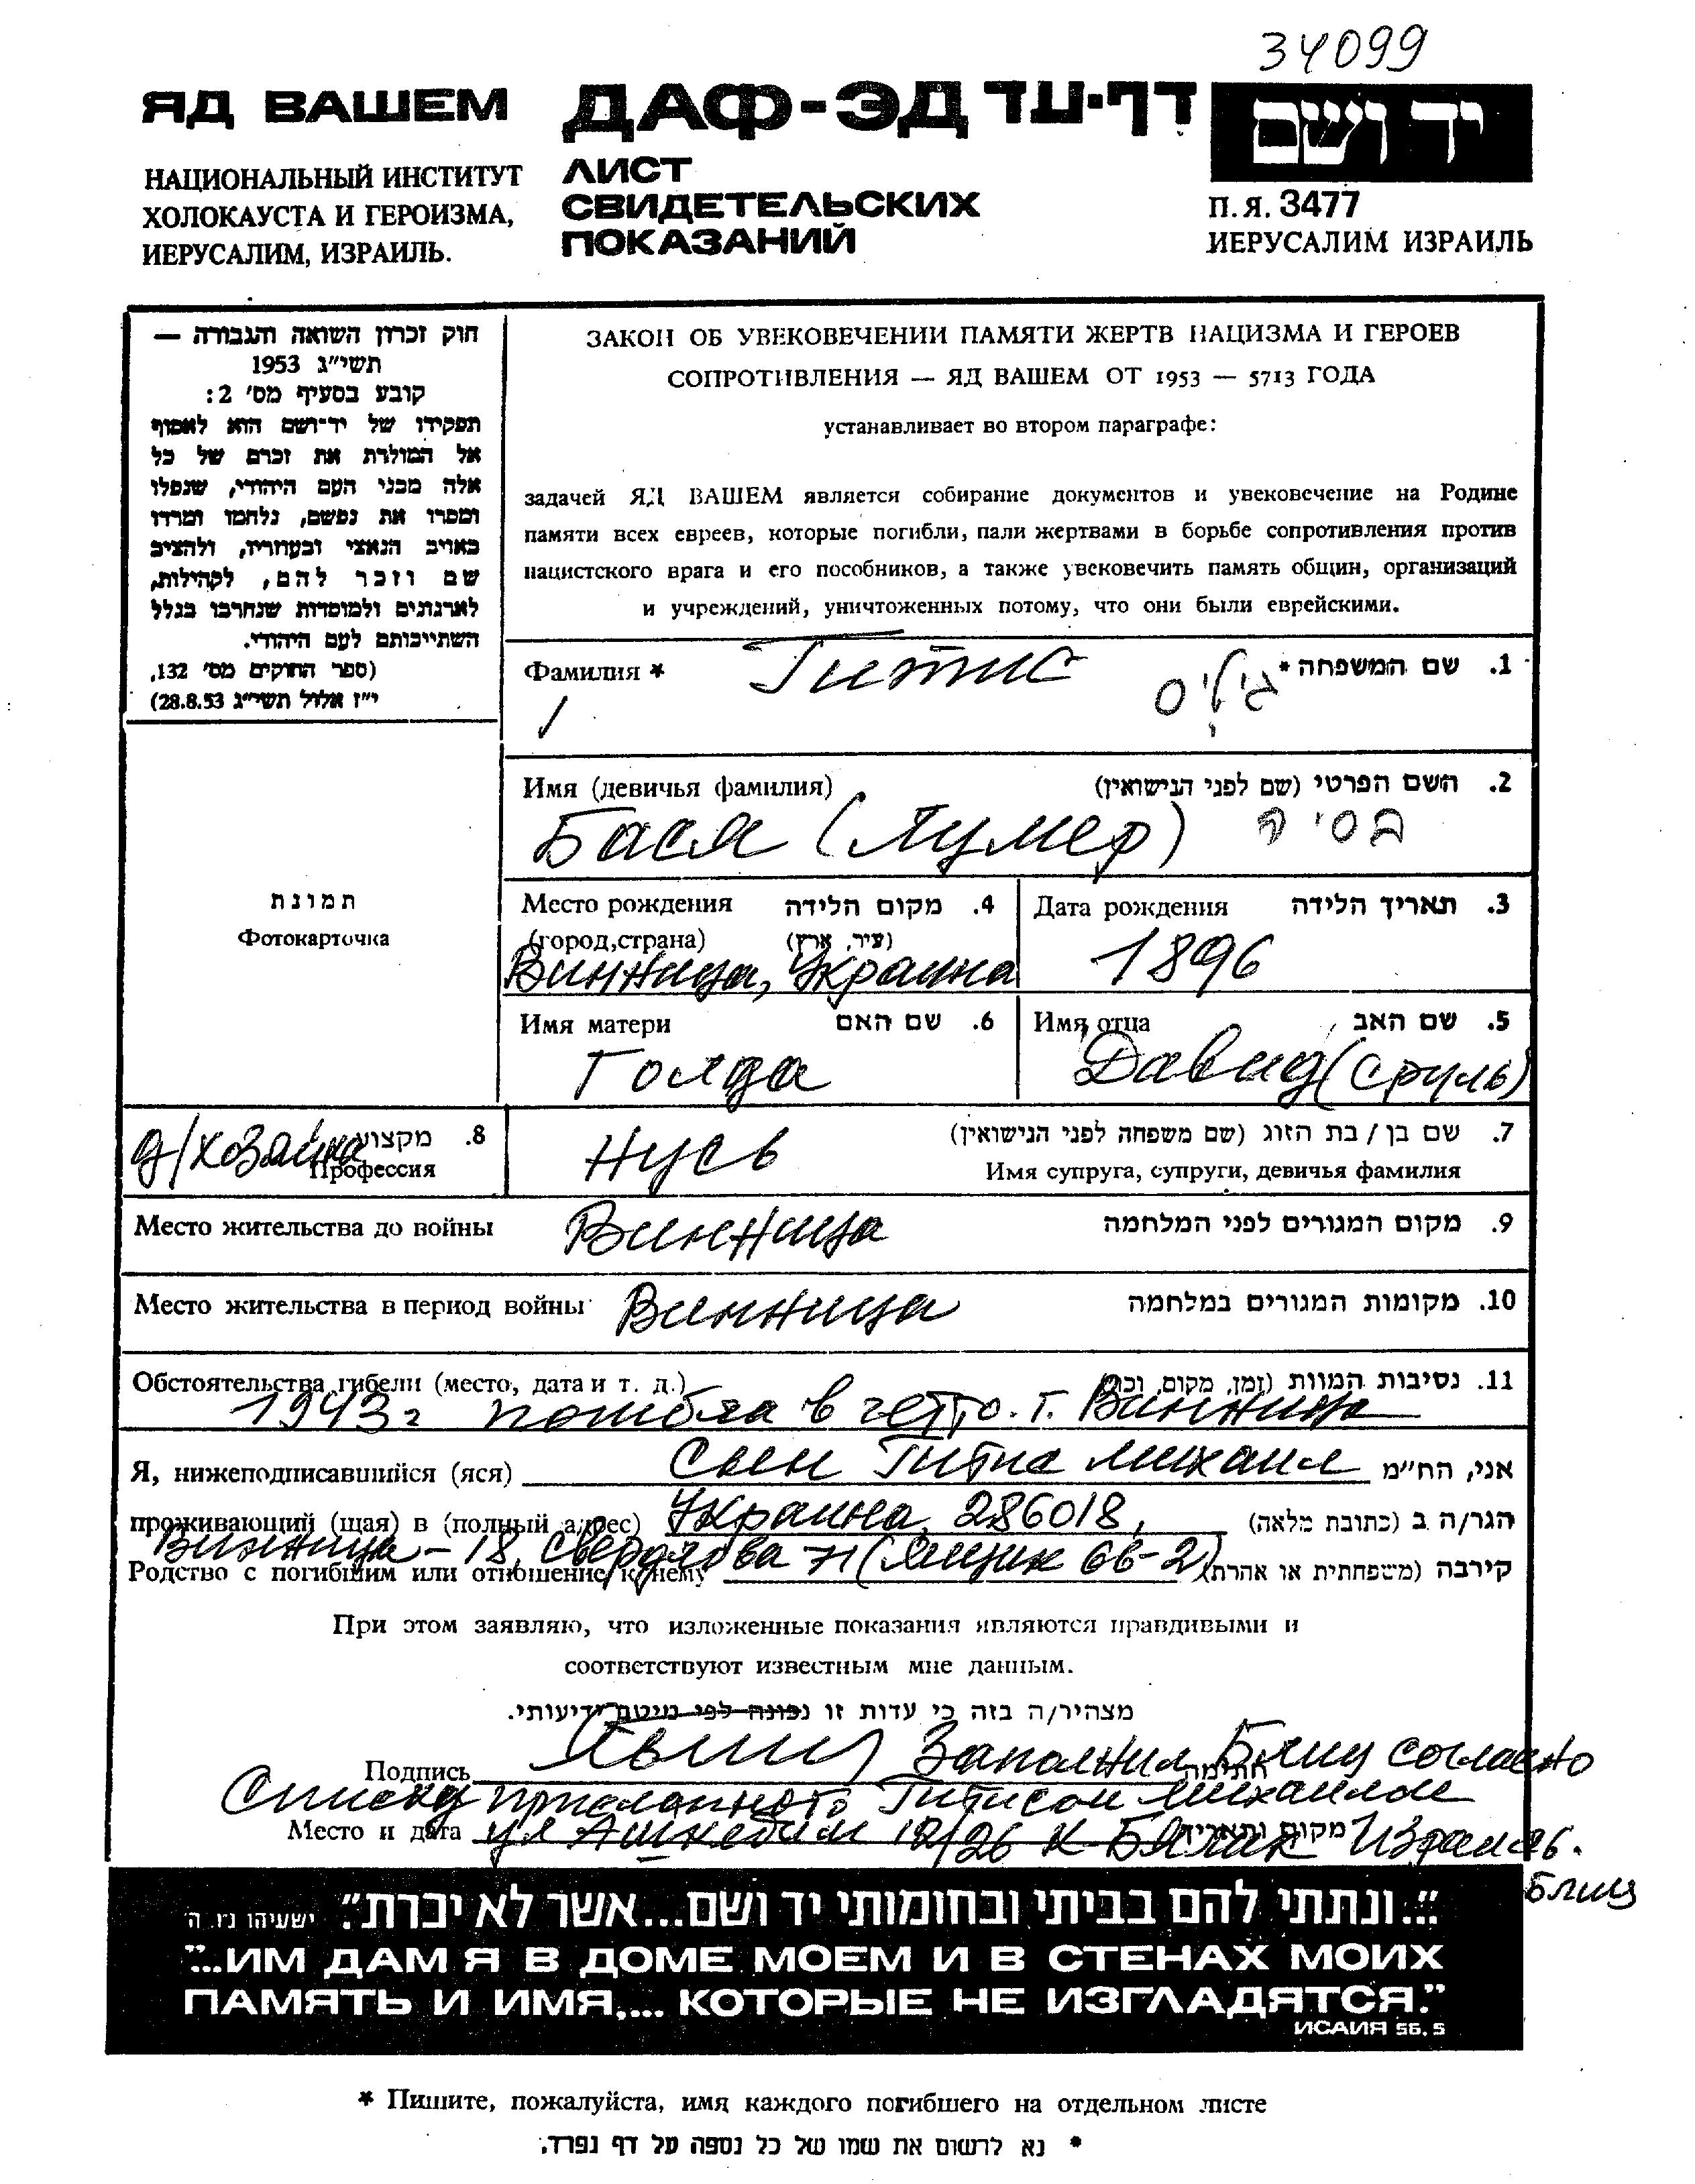 34099
ЯД ВАШЕМ
ДАФ-ЭД דף-עד
יד ושם
НАЦИОНАЛЬНЫЙ ИНСТИТУТ
ХОЛОКАУСТА И ГЕРОИЗМА,
ИЕРУСАЛИМ, ИЗРАИЛЬ.
ЛИСТ
СВИДЕТЕЛЬСКИХ
ПОКАЗАНИЙ
П.Я. 3477
ИЕРУСАЛИМ ИЗРАИЛЬ
חוק זכרון השואה והגבורה —
תשי"ג 1953
קובע בסעיף מס' 2:
תפקידו של יד-ושם הוא לאסוף
אל המולדת את זכרם של כל
אלה מבני העם היהודי, שנפלו
ומסרו את נפשם, נלחמו ומרדו
באויב הנאצי ובעוזריו, ולהציב
שם וזכר להם, לקהילות,
לארגונים ולמוסדות שנחרבו בגלל
השתייכותם לעם היהודי.
(ספר החוקים מס' 132,
י"ז אלול תשי"ג 28.8.53)
ЗАКОН ОБ УВЕКОВЕЧЕНИИ ПАМЯТИ ЖЕРТВ НАЦИЗМА И ГЕРОЕВ
СОПРОТИВЛЕНИЯ — ЯД ВАШЕМ ОТ 1953 — 5713 ГОДА
устанавливает во втором параграфе:
задачей ЯД ВАШЕМ является собирание документов и увековечение на Родине
памяти всех евреев, которые погибли, пали жертвами в борьбе сопротивления против
нацистского врага и его пособников, а также увековечить память общин, организаций
и учреждений, уничтоженных потому, что они были еврейскими.
Фамилия * Гитис 1. שם המשפחה *
Имя (девичья фамилия) 2. השם הפרטי (שם לפני הנישואין)
Бася (Лумер) בסיה
תמונת
Фотокарточка
Место рождения 4. מקום הלידה
(город,страна) (עיר, ארץ)
Винница, Украина
Дата рождения 3. תאריך הלידה
1896
Имя матери 6. שם האם
Голда
Имя отца 5. שם האב
Давид (Сруль)
8. מקצוע
д/хозяйка
Профессия
Нусь
7. שם בן / בת הזוג (שם משפחה לפני הנישואין)
Имя супруга, супруги, девичья фамилия
Место жительства до войны Винница 9. מקום המגורים לפני המלחמה
Место жительства в период войны Винница 10. מקומות המגורים במלחמה
Обстоятельства гибели (место, дата и т. д.) 11. נסיבות המוות (זמן, מקום, וכו')
1943г погибла в гетто. г. Винница
Я, нижеподписавшийся (яся) Сын Гитис Михаил אני, הח"מ
проживающий (щая) в (полный адрес) Украина, 286018, הגר/ה ב (כתובת מלאה)
Винница - 18, Свердлова 71 (Ящик 66-2)
Родство с погибшим или отношение к нему קירבה (משפחתית או אחרת)
При этом заявляю, что изложенные показания являются правдивыми и
соответствуют известным мне данным.
מצהיר/ה בזה כי עדות זו נכונה לפי מיטב ידיעותי.
Подпись Заполнил Блиц согласно חתימה
Списку присланного Гитисом Михаилом
Место и дата ул Ашкебим 12/26 К-Бялик Израиль. מקום ותאריך
Блиц
"...ונתתי להם בביתי ובחומותי יד ושם...אשר לא יכרת". ישעיהו נו, ה
"...ИМ ДАМ Я В ДОМЕ МОЕМ И В СТЕНАХ МОИХ
ПАМЯТЬ И ИМЯ,... КОТОРЫЕ НЕ ИЗГЛАДЯТСЯ."
ИСАИЯ 56, 5
* Пишите, пожалуйста, имя каждого погибшего на отдельном листе
* נא לרשום את שמו של כל נספה על דף נפרד.